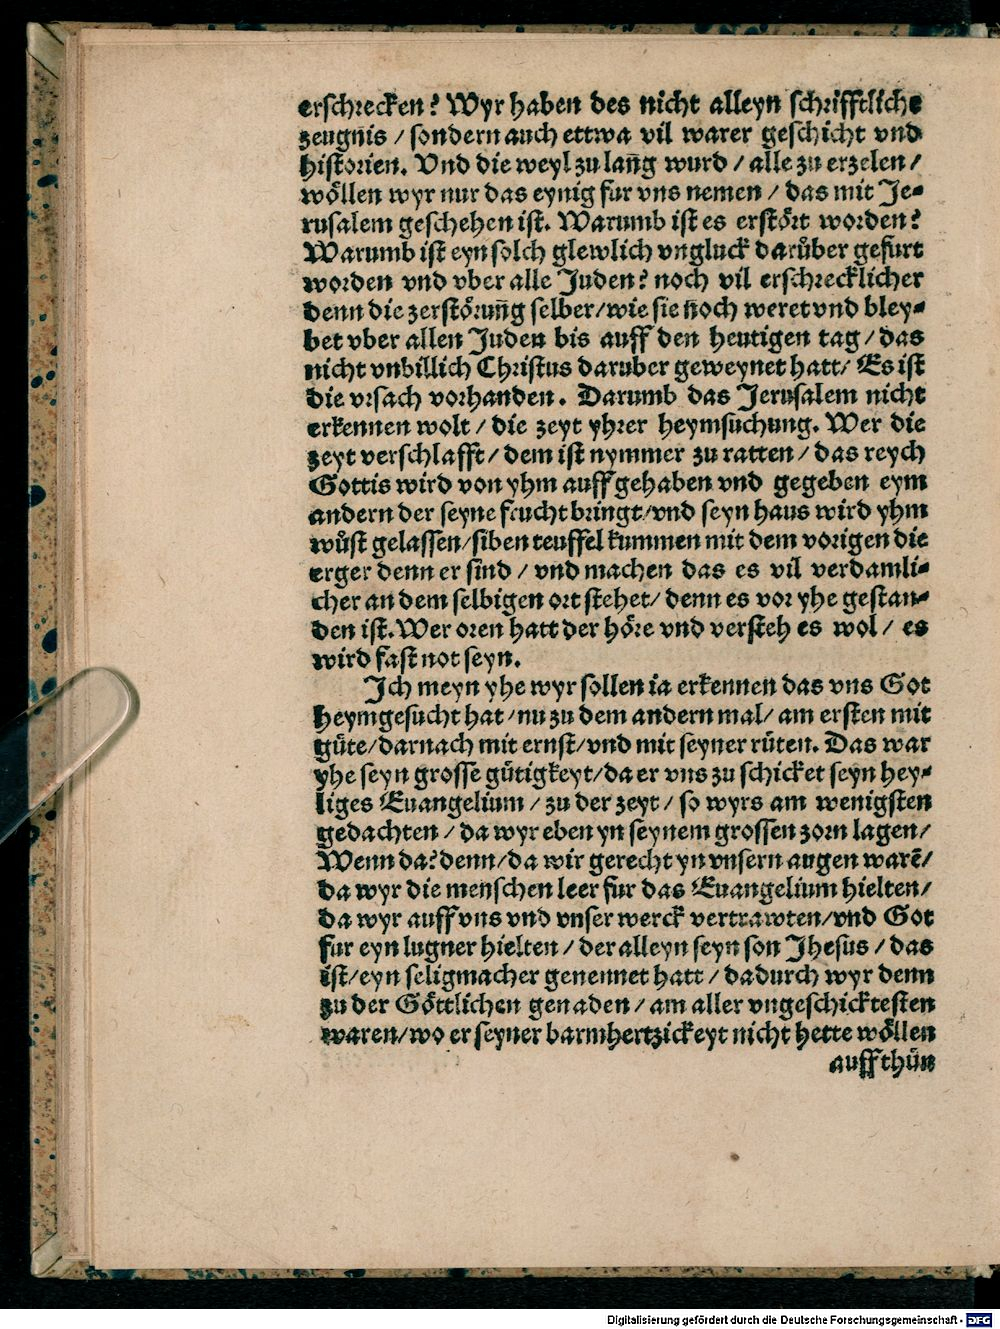 erschrecken? Wyr haben des nicht alleyn schrifftliche
zeugnis / sondern auch ettwa vil warer geschicht vnd
historien. Vnd die weyl zu lañg wurd / alle zu erzelen /
wöllen wyr nur das eynig fur vns nemen / das mit Je-
rusalem geschehen ist. Warumb ist es erstört worden?
Warumb ist eyn solch glewlich vngluck darůber gefurt
worden vnd vber alle Juden? noch vil erschrecklicher
denn die zerstöruñg selber/wie sie noch weret vnd bley-
bet vber allen Juden bis auff den heutigen tag / das
nicht vnbillich Christus daruber geweynet hatt/ Es ist
die vrsach vorhanden. Darumb das Jerusalem nicht
erkennen wolt / die zeyt yhrer heymsuchung. Wer die
zeyt verschlafft/ dem ist nymmer zu ratten / das reych
Gottis wird von yhm auffgehaben vnd gegeben eym
andern der seyne frucht bringt/vnd seyn haus wird yhm
wůst gelassen/siben teuffel kummen mit dem vorigen die
erger denn er sind / vnd machen das es vil verdamli-
cher an dem selbigen ort stehet/ denn es vor yhe gestan-
den ist. Wer oren hatt der höre vnd versteh es wol / es
wird fast not seyn.
Ich meyn yhe wyr sollen ia erkennen das vns Got
heymgesucht hat/nu zu dem andern mal/ am ersten mit
gůte/darnach mit ernst/vnd mit seyner růten. Das war
yhe seyn grosse gůtigkeyt/da er vns zu schicket seyn hey-
liges Euangelium / zu der zeyt / so wyrs am wenigsten
gedachten / da wyr eben yn seynem grossen zorn lagen/
Wenn da? denn/da wir gerecht yn vnsern augen warẽ/
da wyr die menschen leer fur das Euangelium hielten/
da wyr auff vns vnd vnser werck vertrawten/vnd Got
fur eyn lugner hielten / der alleyn seyn son Jhesus / das
ist/eyn seligmacher genennet hatt / dadurch wyr denn
zu der Göttlichen genaden / am aller vngeschicktesten
waren/wo er seyner barmhertzickeyt nicht hette wöllen
auffthůn
Digitalisierung gefördert durch die Deutsche Forschungsgemeinschaft - DFG